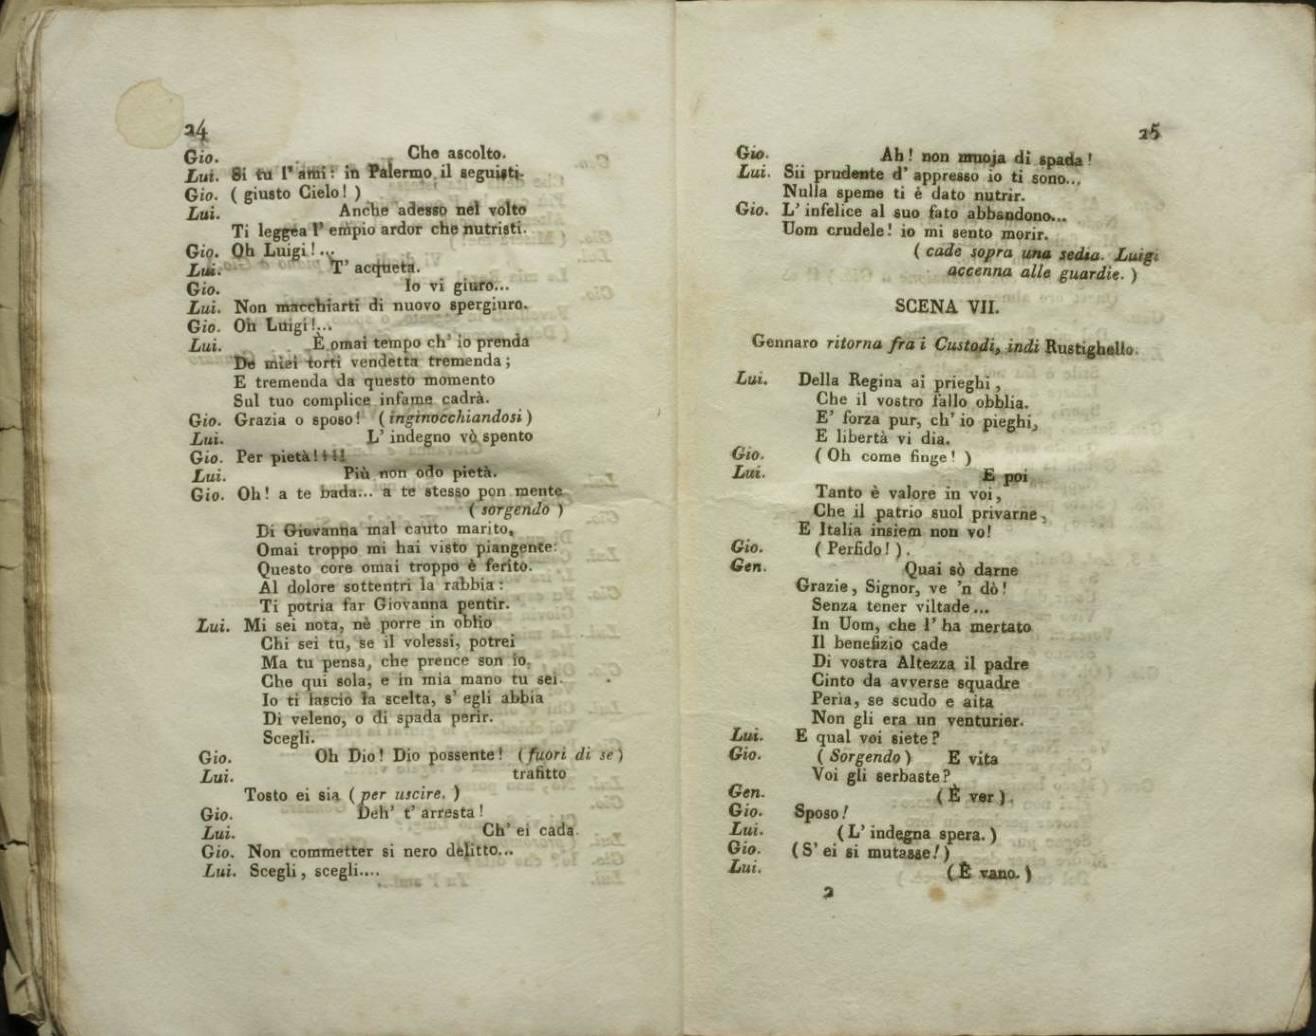 24
Gio. Che ascolto.
Lui. Si tu l' ami: in Palermo il seguisti.
Gio. ( giusto Cielo! )
Lui. Anche adesso nel volto
Ti leggea l' empio ardor che nutristi.
Gio. Oh Luigi!...
Lui. T' acqueta.
Gio. Io vi giuro...
Lui. Non macchiarti di nuovo spergiuro.
Gio. Oh Luigi!...
Lui. È omai tempo ch' io prenda
De miei torti vendetta tremenda;
E tremenda da questo momento
Sul tuo complice infame cadrà.
Gio. Grazia o sposo! ( inginocchiandosi )
Lui. L' indegno vò spento
Gio. Per pietà!!!!
Lui. Più non odo pietà.
Gio. Oh! a te bada... a te stesso pon mente
( sorgendo )
Di Giovanna mal cauto marito,
Omai troppo mi hai visto piangente:
Questo core omai troppo è ferito.
Al dolore sottentri la rabbia:
Ti potria far Giovanna pentir.
Lui. Mi sei nota, nè porre in oblio
Chi sei tu, se il volessi, potrei
Ma tu pensa, che prence son io,
Che qui sola, e in mia mano tu sei.
Io ti lascio la scelta, s' egli abbia
Di veleno, o di spada perir.
Scegli.
Gio. Oh Dio! Dio possente! ( fuori di se )
Lui. trafitto
Tosto ei sia ( per uscire. )
Gio. Deh' t' arresta!
Lui. Ch' ei cada.
Gio. Non commetter si nero delitto...
Lui. Scegli, scegli....
25
Gio. Ah! non muoja di spada!
Lui. Sii prudente d' appresso io ti sono...
Nulla speme ti è dato nutrir.
Gio. L' infelice al suo fato abbandono...
Uom crudele! io mi sento morir.
( cade sopra una sedia. Luigi
accenna alle guardie. )
SCENA VII.
Gennaro ritorna fra i Custodi, indi Rustighello.
Lui. Della Regina ai prieghi,
Che il vostro fallo obblia.
E' forza pur, ch' io pieghi,
E libertà vi dia.
Gio. ( Oh come finge! )
Lui. E poi
Tanto è valore in voi,
Che il patrio suol privarne,
E Italia insiem non vo!
Gio. ( Perfido! ).
Gen. Quai sò darne
Grazie, Signor, ve 'n dò!
Senza tener viltade...
In Uom, che l' ha mertato
Il benefizio cade
Di vostra Altezza il padre
Cinto da avverse squadre
Peria, se scudo e aita
Non gli era un venturier.
Lui. E qual voi siete?
Gio. ( Sorgendo ) E vita
Voi gli serbaste?
Gen. ( È ver ).
Gio. Sposo!
Lui. ( L' indegna spera. )
Gio. ( S' ei si mutasse! )
Lui. ( È vano. )
2